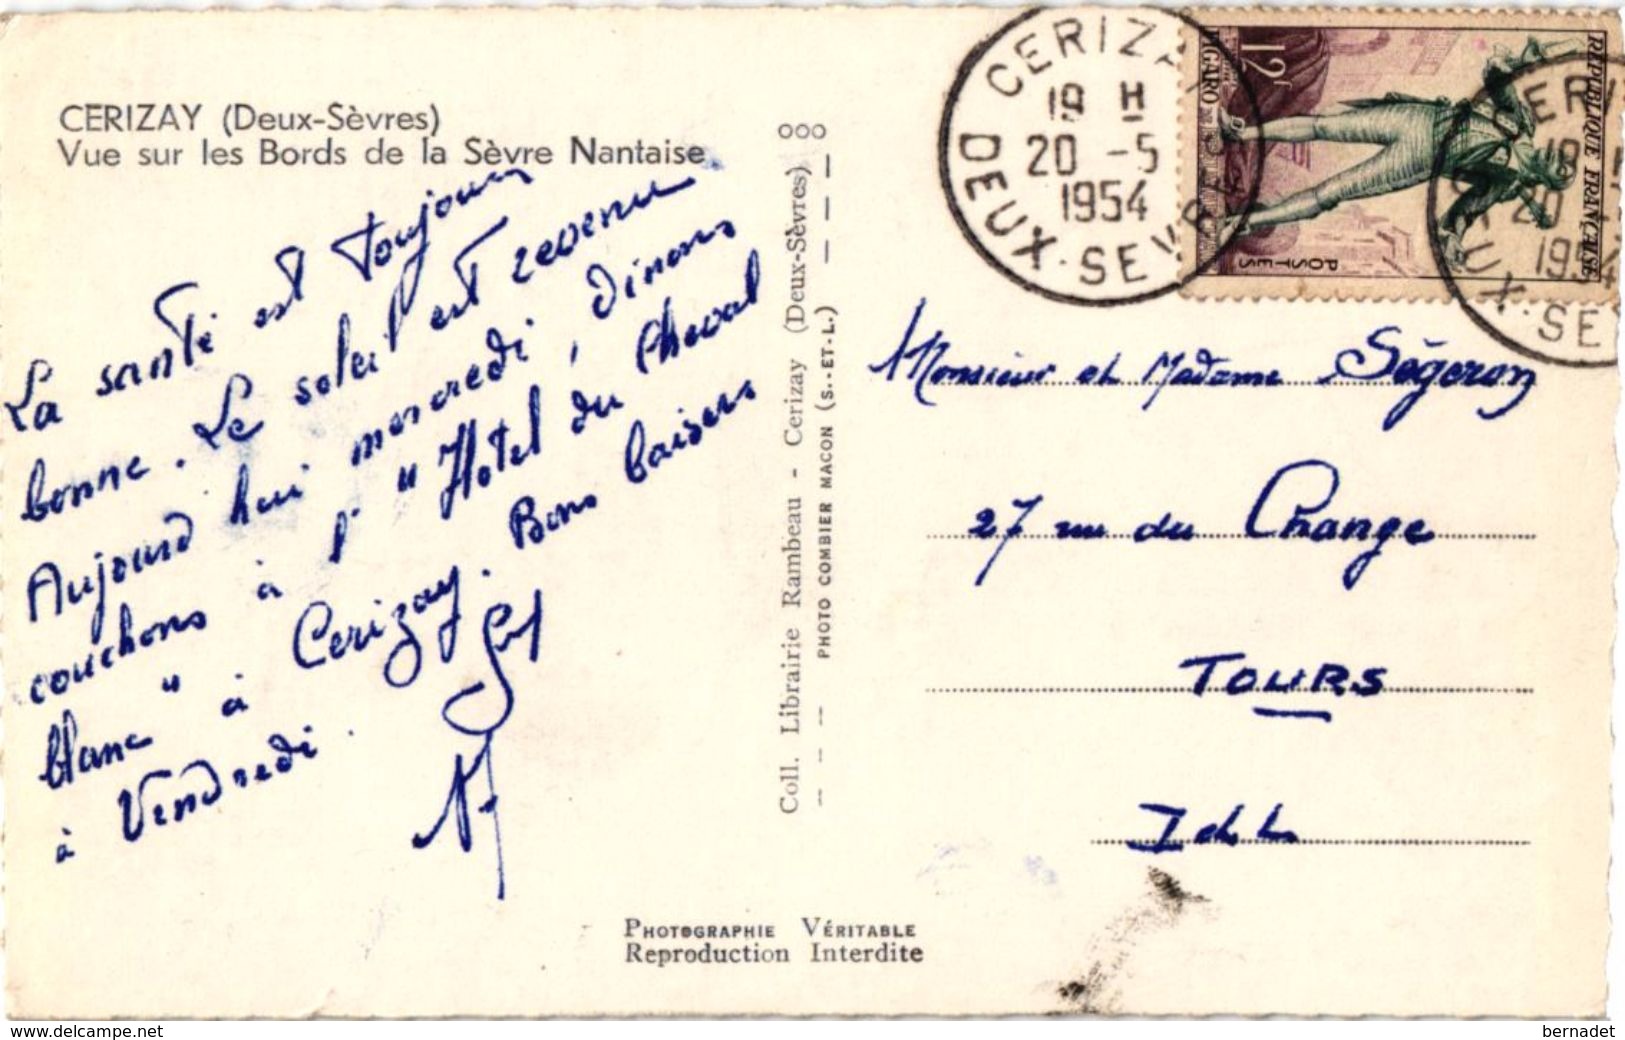 CERIZAY (Deux-Sèvres)
Vue sur les Bords de la Sèvre Nantaise
La santé est toujours
bonne. Le soleil est revenu
Aujourd hui mercredi, dinons
couchons à l' "Hotel du Cheval
blanc" à Cerizay. Bons baisers
à Vendredi.
ooo
Coll. Librairie Rambeau - Cerizay (Deux-Sèvres)
PHOTO COMBIER MACON (S.-ET-L.)
CERIZAY
19 H
20 -5
1954
DEUX-SEVRES
12f
FIGARO
REPUBLIQUE FRANÇAISE
POSTES
CERIZ
18
20
1954
DEUX-SE
Monsieur et Madame Ségeron
27 rue du Change
TOURS
I et L
PHOTOGRAPHIE VÉRITABLE
Reproduction Interdite
www.delcampe.net
bernadet